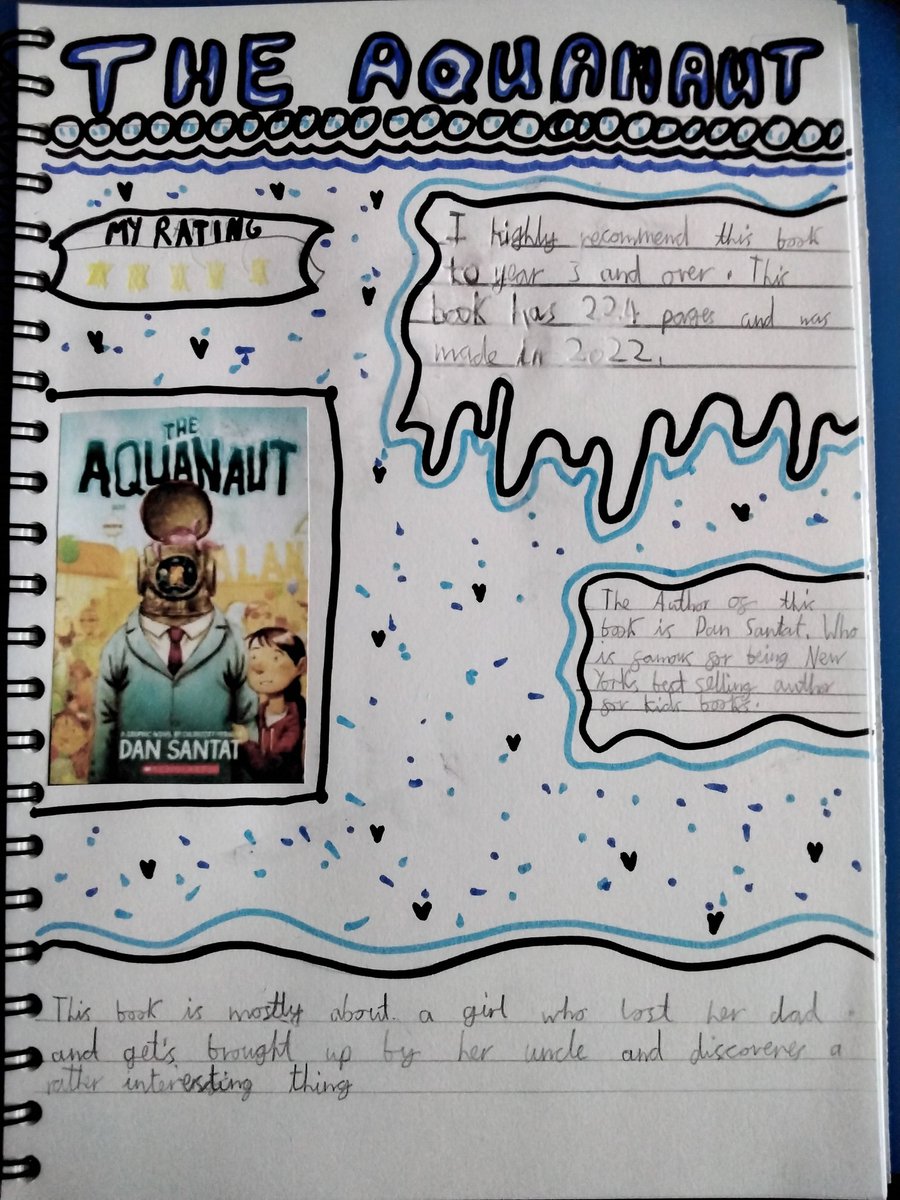 THE AQUANAUT
MY RATING
I highly recommend this book
to year 3 and over. This
book has 224 pages and was
made in 2022.
THE
AQUANAUT
A GRAPHIC NOVEL BY CALDECOTT MEDALIST
DAN SANTAT
The Author of this
book is Dan Santat. Who
is famous for being New
Yorks best selling author
for kids books.
This book is mostly about a girl who lost her dad
and get's brought up by her uncle and discoveres a
rather interesting thing